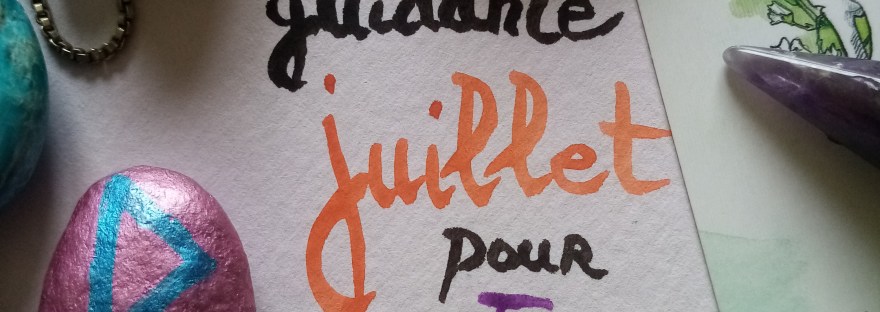 guidance
juillet
pour